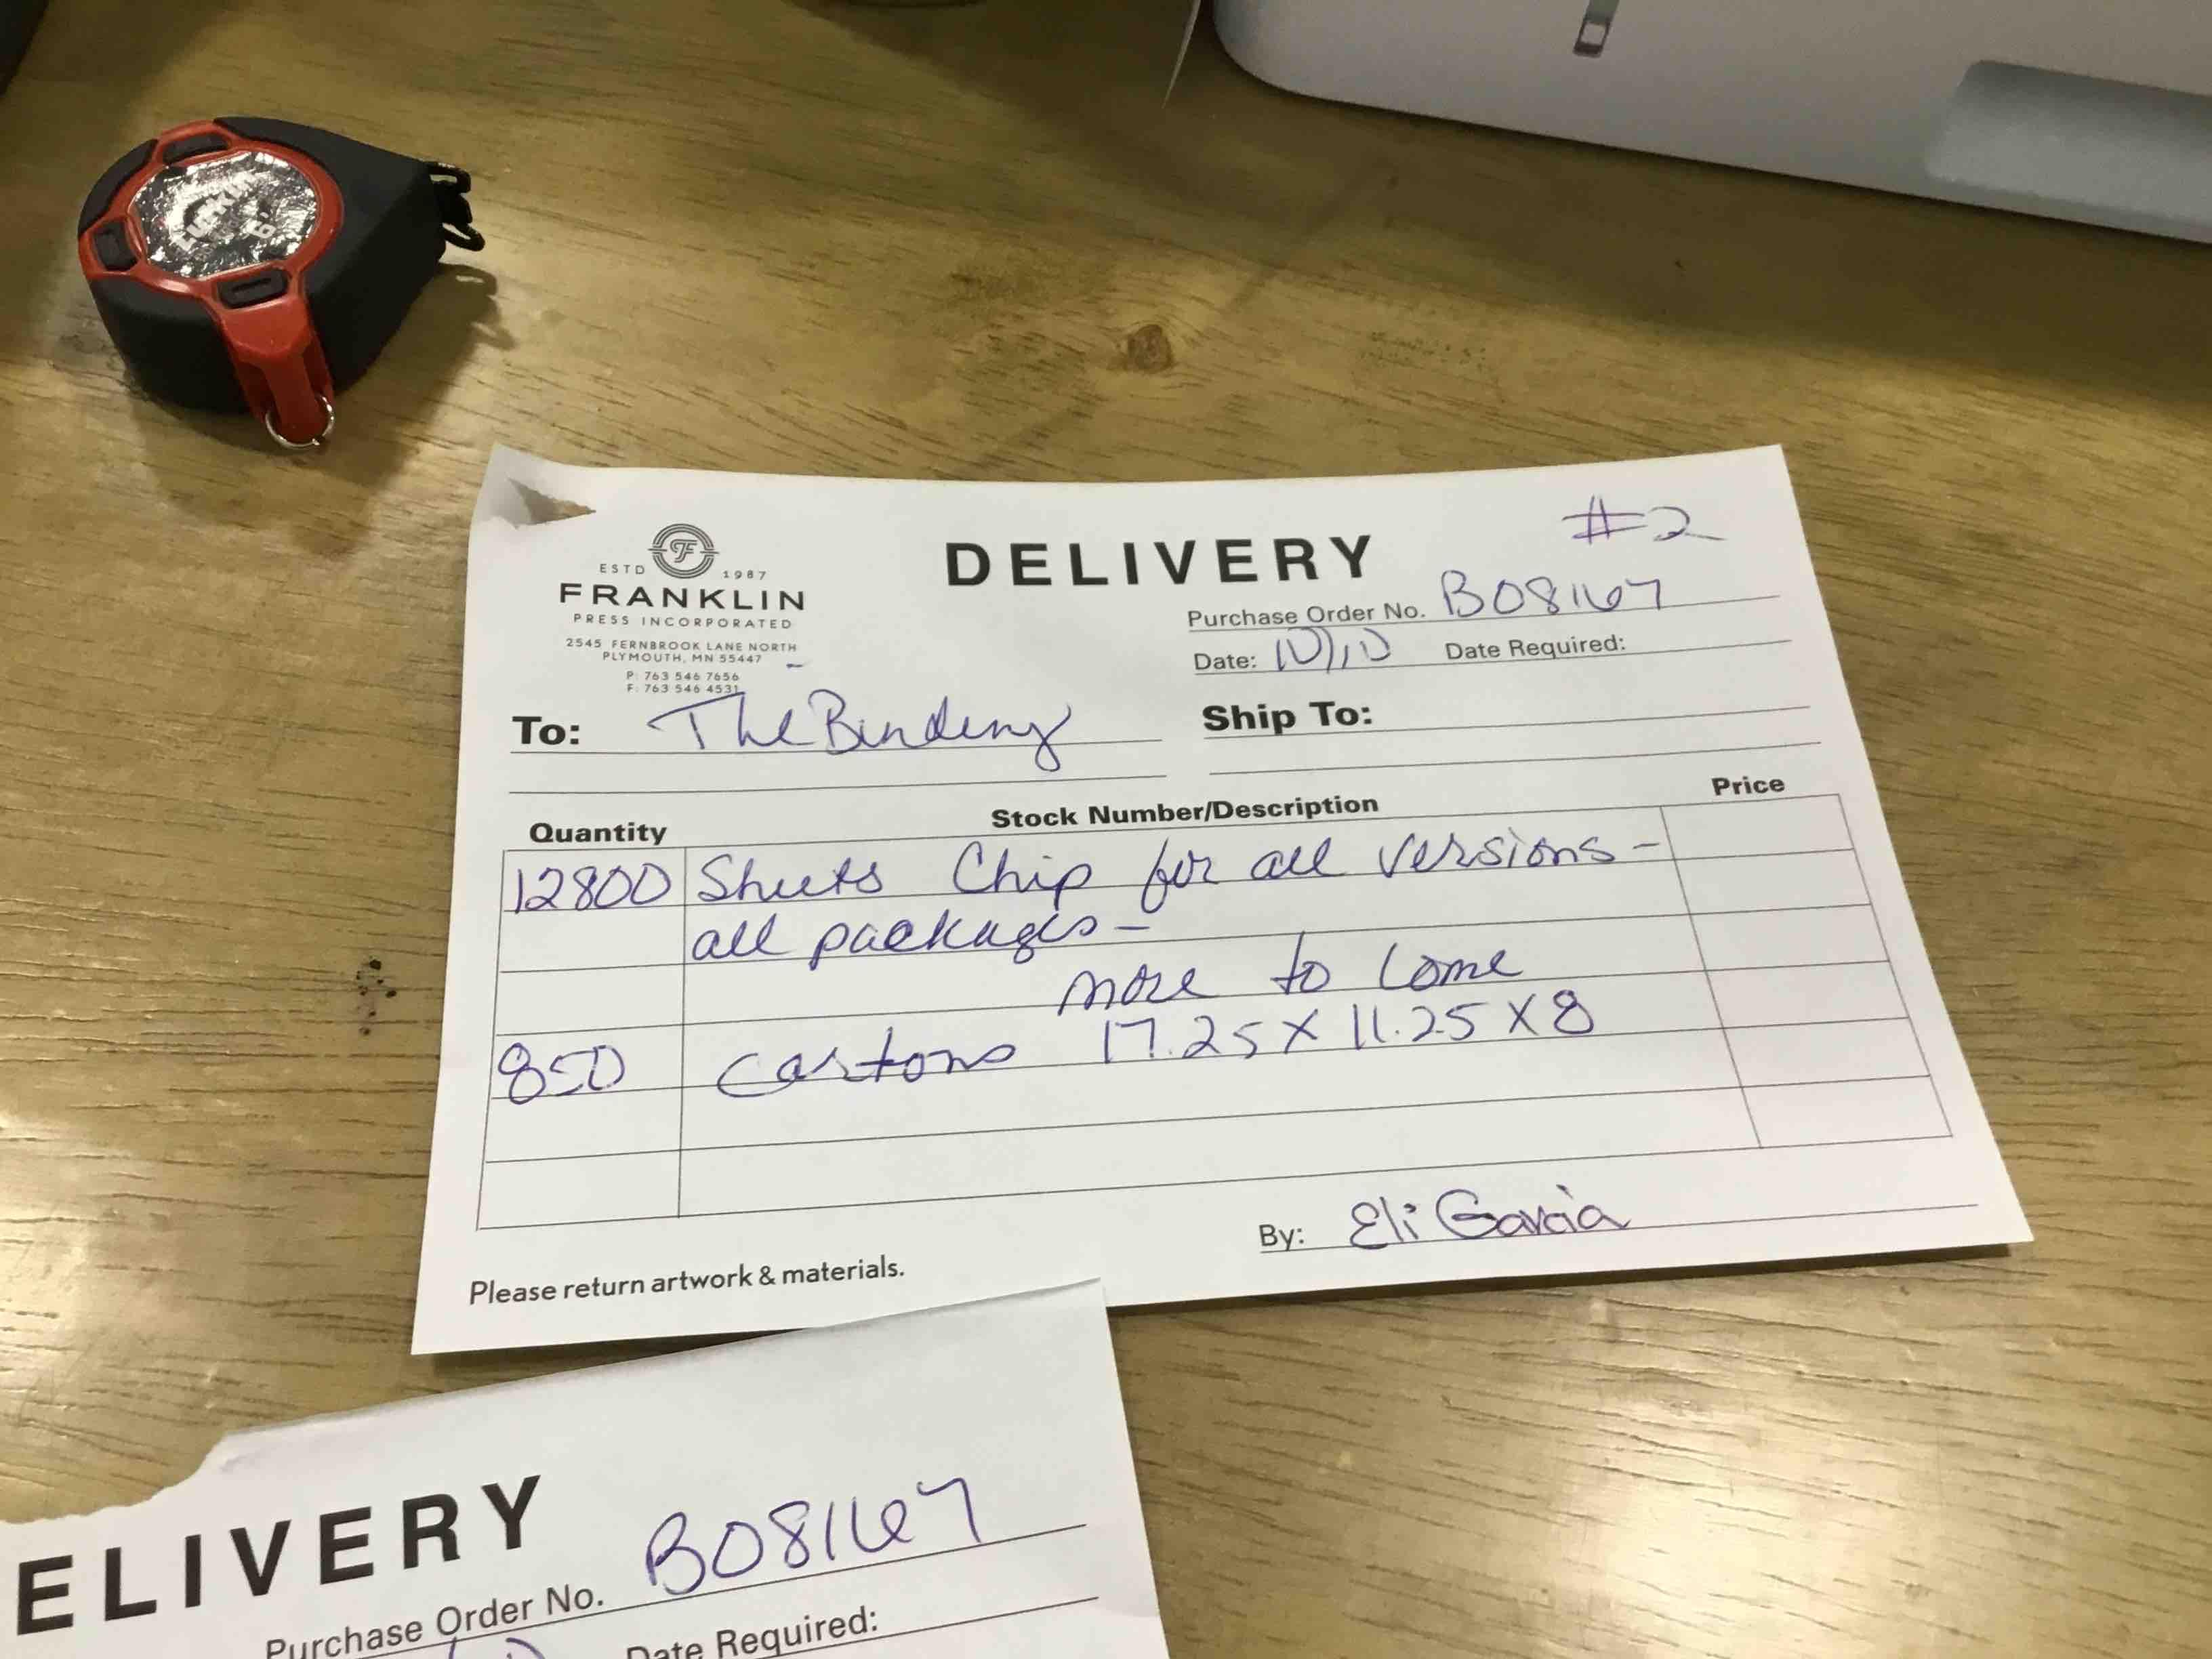 #2
DELIVERY
ESTD 1987
FRANKLIN
PRESS INCORPORATED
2545 FERNBROOK LANE NORTH
PLYMOUTH, MN 55447
P: 763 546 7656
F: 763 546 4531
Purchase Order No. B08167
Date: 10/10 Date Required:
To: The Bindery
Ship To:
Quantity Stock Number/Description Price
12800 Sheets Chip for all versions -
all packages -
more to come
850 cartons 17.25 X 11.25 X 8
By: Eli Garcia
Please return artwork & materials.
ELIVERY
Purchase Order No. B08167
Date Required: